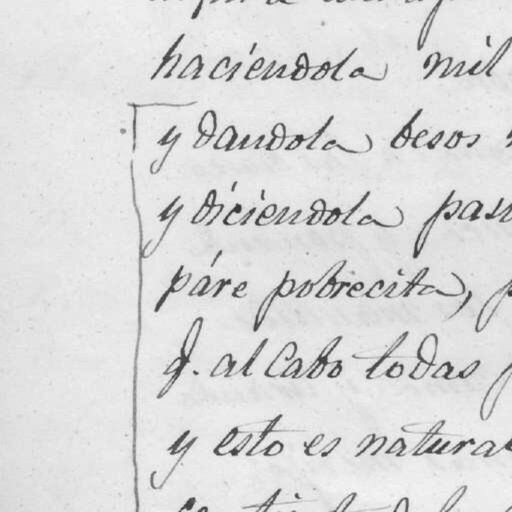 haciendola mil
y dandola besos
y diciendola
páre pobrecita,
q. al cabo todas
y esto es natura